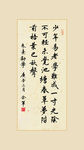 少年易老學難成一寸光陰
不可輕未覺池塘春草夢階
前梧葉已秋聲
朱熹勸學